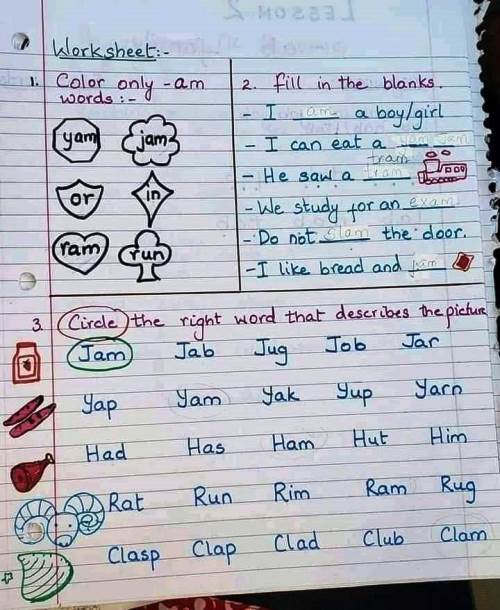 LESSON 2
Worksheet:-
1. Color only -am
words :-
yam jam
or in
ram run
2. fill in the blanks.
- I am a boy/girl
- I can eat a yam
tram
- He saw a tram
- We study for an exam
- Do not slam the door.
- I like bread and jam
3 Circle the right word that describes the picture
Jam Jab Jug Job Jar
Yap Yam Yak Yup Yarn
Had Has Ham Hut Him
Rat Run Rim Ram Rug
Clasp Clap Clad Club Clam